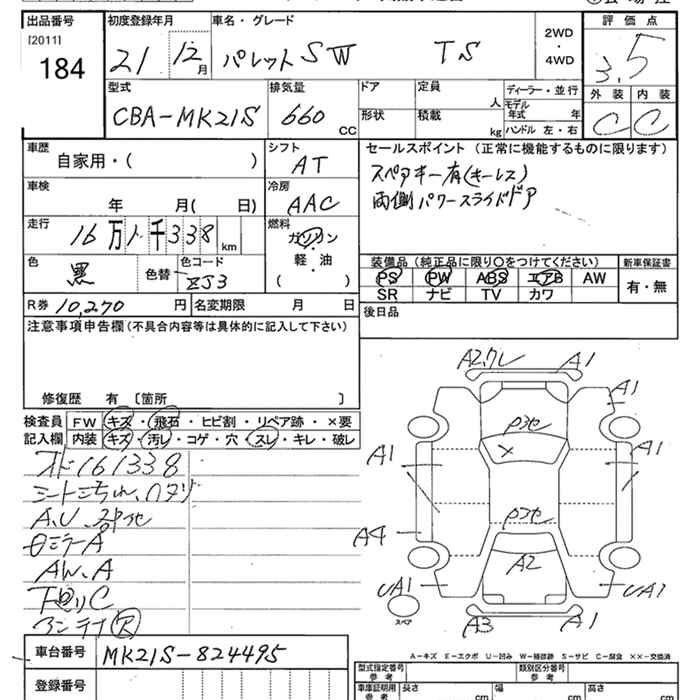 出品番号 初度登録年月 車名・グレード 評価点
[2011] 2WD
184 21 12月 パレットSW TS ・ 3.5
4WD
型式 排気量 ドア 定員 ディーラー・並行 外装 内装
人 モデル年式 年
CBA-MK21S 660 CC 形状 積載 kg ハンドル 左・右 C C
車歴 シフト セールスポイント (正常に機能するものに限ります)
自家用・( ) AT スペアキー有(キーレス)
車検 冷房 両側パワースライドドア
年 月( 日) AAC
走行 燃料
16万1千338km ガソリン
軽・油
色 色コード 装備品(純正品に限り○をつけてください) 新車保証書
黒 色替 ZJ3 ( ) PS PW ABS エアB AW 有・無
SR ナビ TV カワ
R券 10,270円 名変期限 月 日 後日品
注意事項申告欄(不具合内容等は具体的に記入して下さい)
修復歴 有〔箇所 〕
検査員 FW キズ・飛石・ヒビ割・リペア跡・×要
記入欄 内装 キズ・汚レ・コゲ・穴・スレ・キレ・破レ
161338
AW.A
下回りC
A2,クレ A1
A1
A1 A1
A4
A2
UA1 UA1
スペア
A3 A1
A-キズ E-エクボ U-凹み W-補修跡 S-サビ C-腐食 ××-交換済
車台番号 MK21S-824495 型式指定番号 参考 類別区分番号 参考
登録番号 車庫証明用 参考 長さ cm 幅 cm 高さ cm